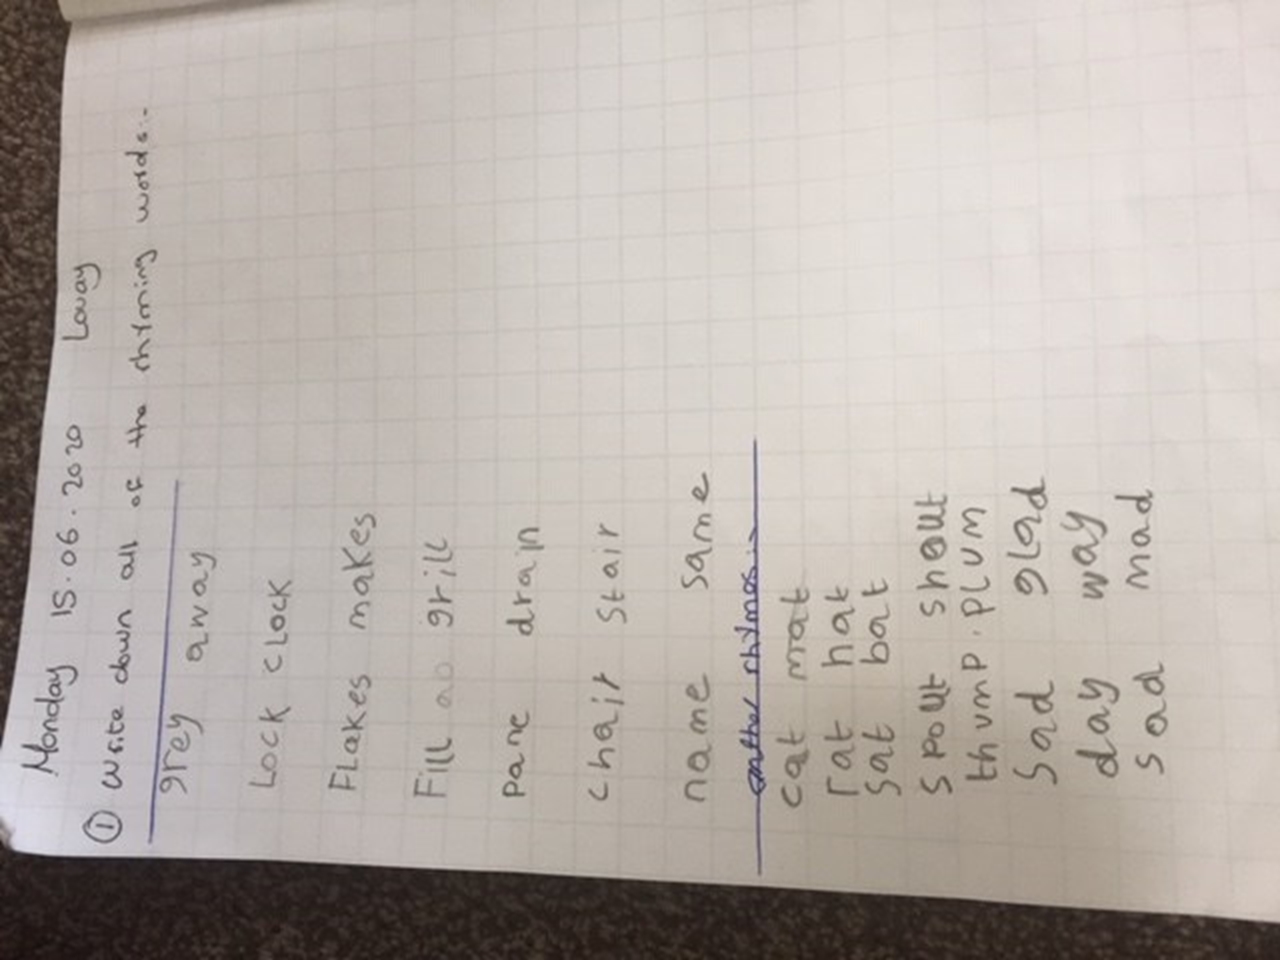 Monday 15.06.2020 Louay
① write down all of the rhyming words:-
grey away
Lock cLock
FLakes makes
FiLL grilL
pane drain
chair Stair
name Same
other rhymes:-
cat mat
rat hat
Sat bat
Spout shout
thump. plum
Sad glad
day way
sad mad